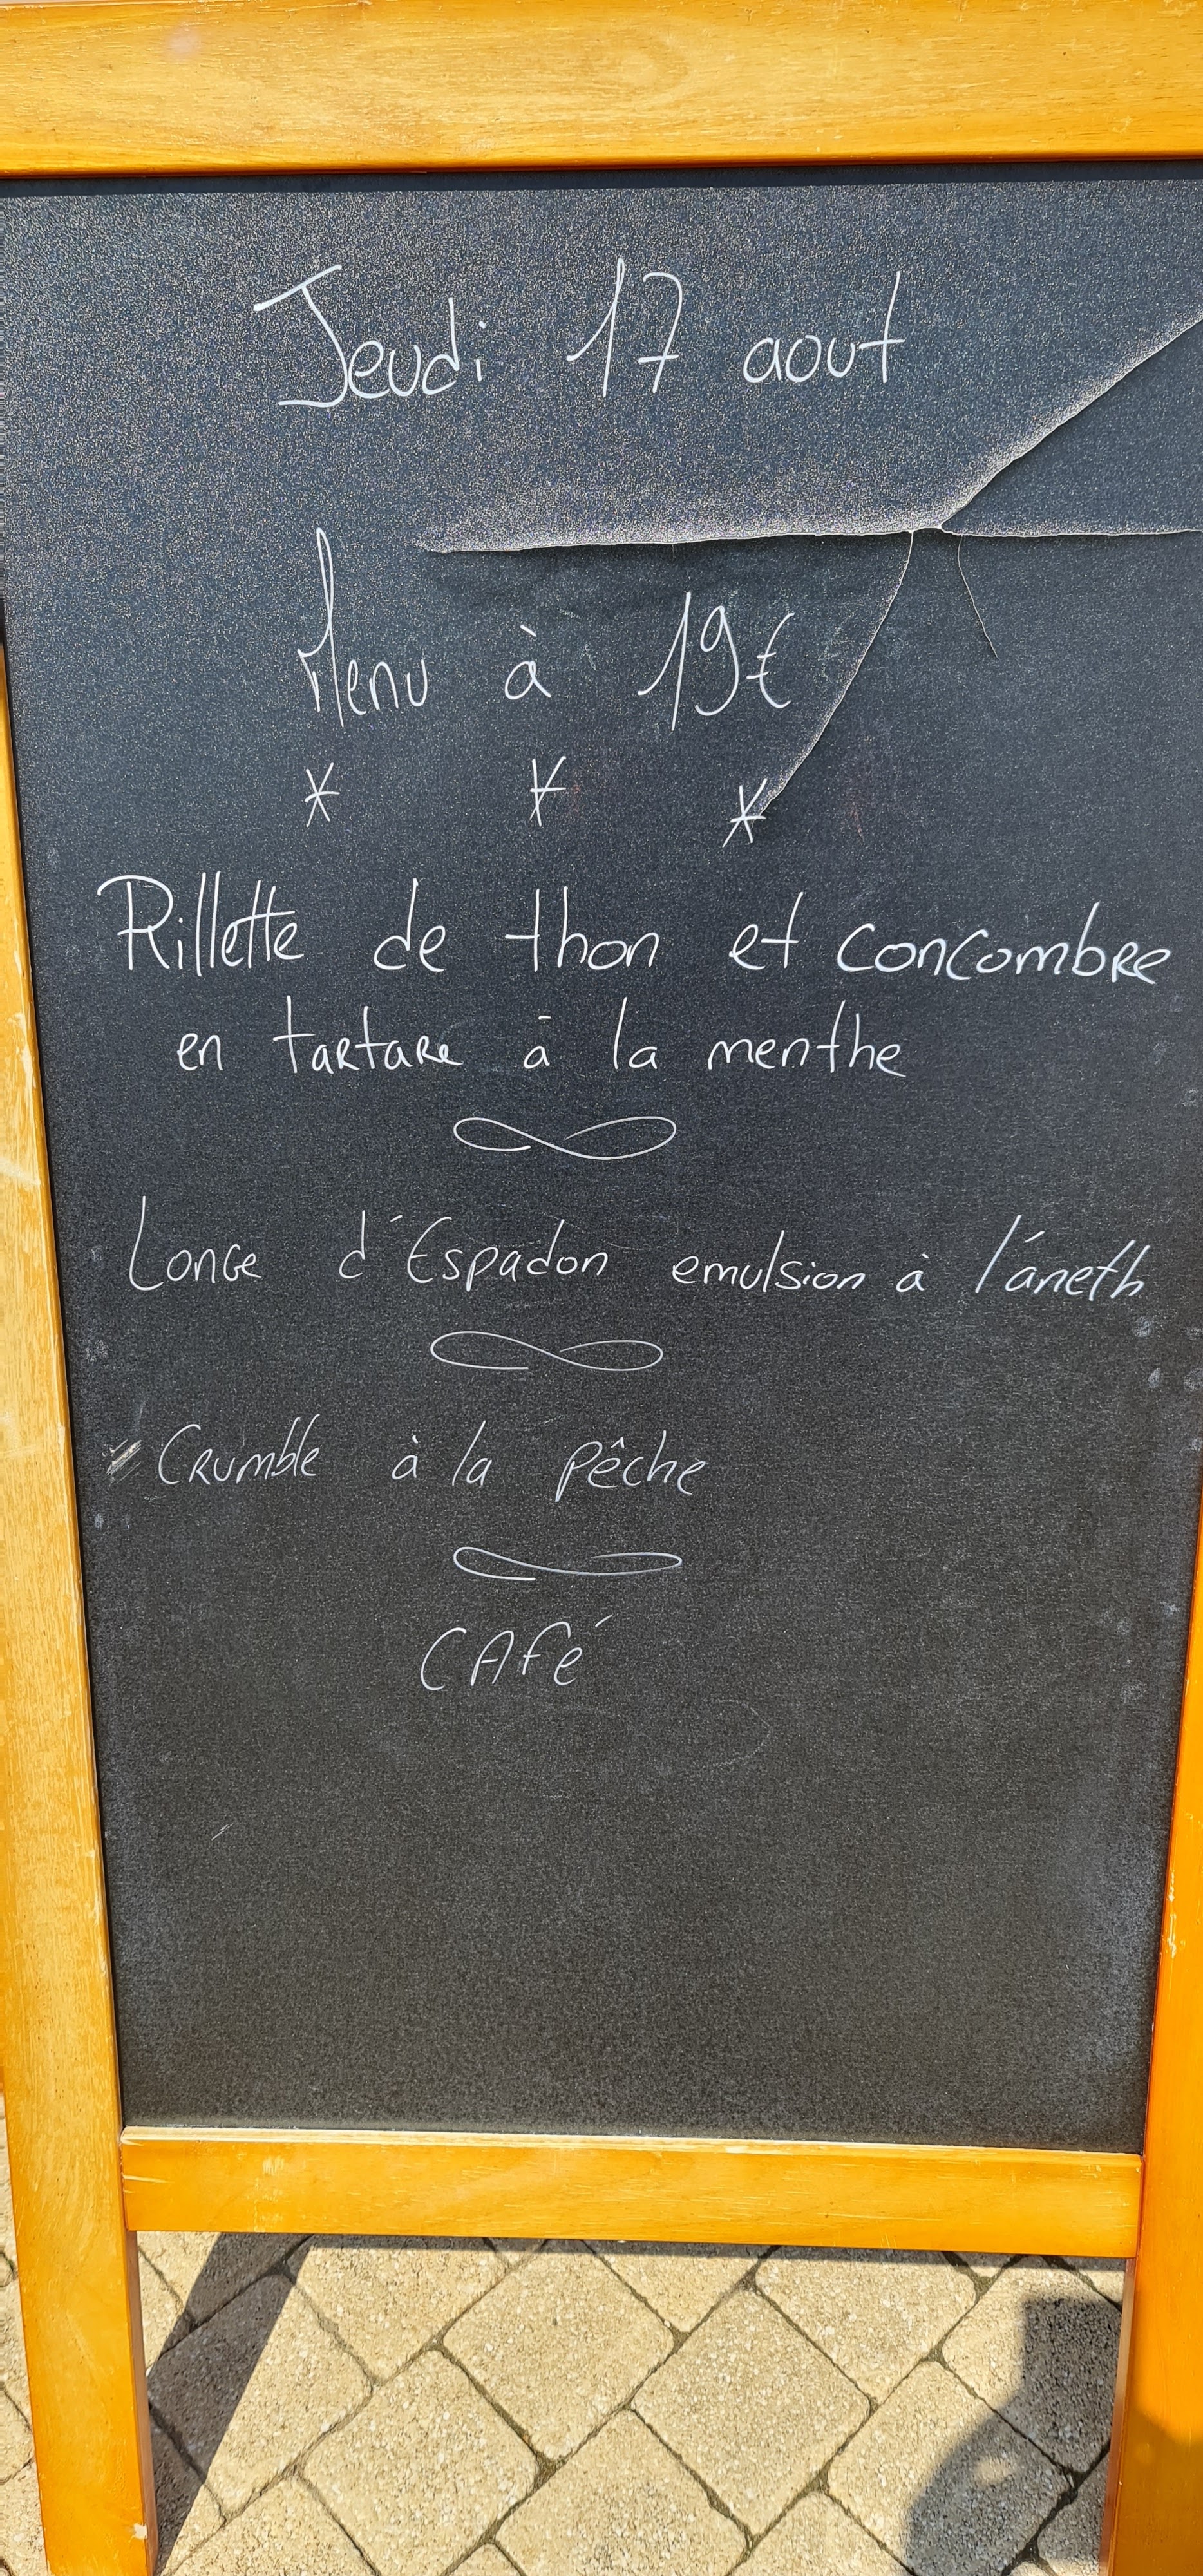 Jeudi 17 aout
Menu à 19€
* * *
Rillette de thon et concombre
en tartare à la menthe
Longe d'Espadon emulsion à l'aneth
Crumble à la pêche
CAfé